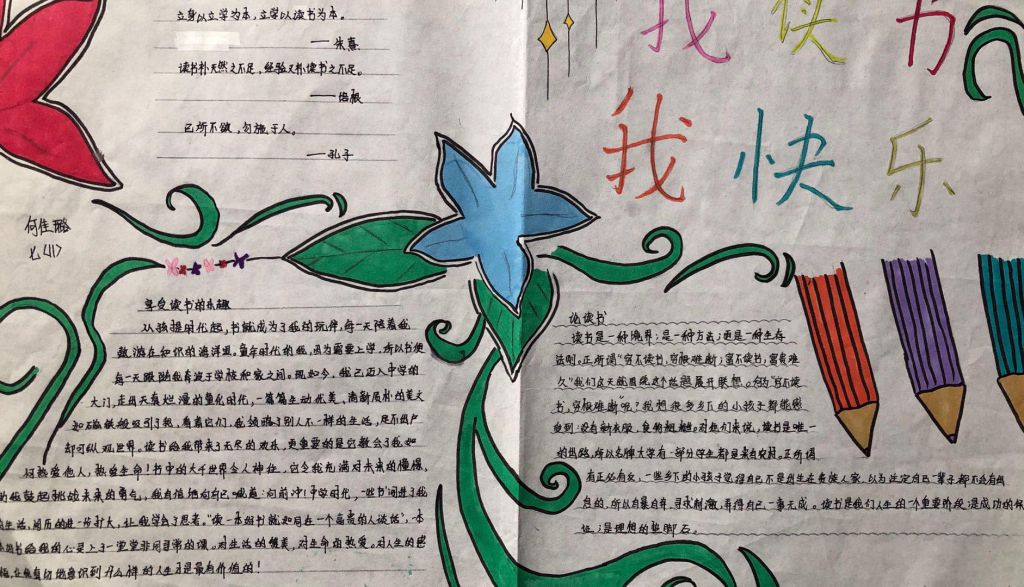 立身以立学为本,立学以读书为本。
——朱熹
读书补天然之不足,经验又补读书之不足。
——培根
己所不欲,勿施于人。
——孔子
我读书
我快乐
何佳璐
七(11)
享受读书的乐趣
从孩提时代起,书就成为了我的玩伴,每一天陪着我
遨游在知识的海洋里。童年时代的我,因为需要上学,所以书便
每一天跟随我奔波于学校和家之间。现如今,我已迈入中学的
大门,走出天真烂漫的童化时代,一篇篇生动优美,清新质朴的美文
如磁铁般吸引了我,看着它们,我领略了别人不一样的生活,足不出户
却可纵观世界。读书给我带来了无尽的欢乐,更重要的是它教会了我如
何热爱他人,热爱生命!书中的大千世界令人神往,它令我充满对未来的憧憬,
我鼓起挑战未来的勇气,我自信地向自己呐喊:向前冲!中学时代,一些书闯进了我
生活,阅历的进一步扩大,让我学会了思考。"读一本好书就如同在一个高贵的人谈话",一本
书给我的心灵上了一堂堂非同寻常的课。对生活的赞美,对生命的热爱。对人生的感
真切地意识到什么样的人生才是最有价值的!
论读书
读书是一种境界;是一种方法;更是一种生存
法则。正所谓"穷不读书,穷根难断;富不读书,富贵难
久"我们这天就围绕这个话题展开联想。何为"穷不读
书,穷根难断"呢?我想很多乡下的小孩子都能感
受到:没有新衣服,食物粗糙。对他们来说,读书是唯一
的出路,所以名牌大学有一部分学生都是来自农村。正所谓
有正必有反,一些乡下的小孩子觉得自己不是出生在贵族人家,以为注定自己一辈子都不会有出
息的,所以自暴自弃,寻求刺激,弄得自己一事无成。读书是我们人生的一个重要阶段,是成功的保
证;是理想的垫脚石。